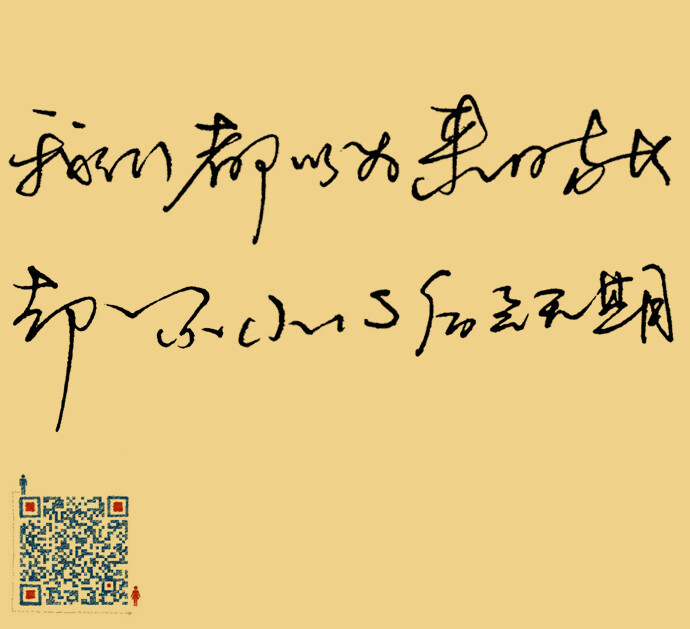 我们都以为来日方长
却一不小心了后会无期